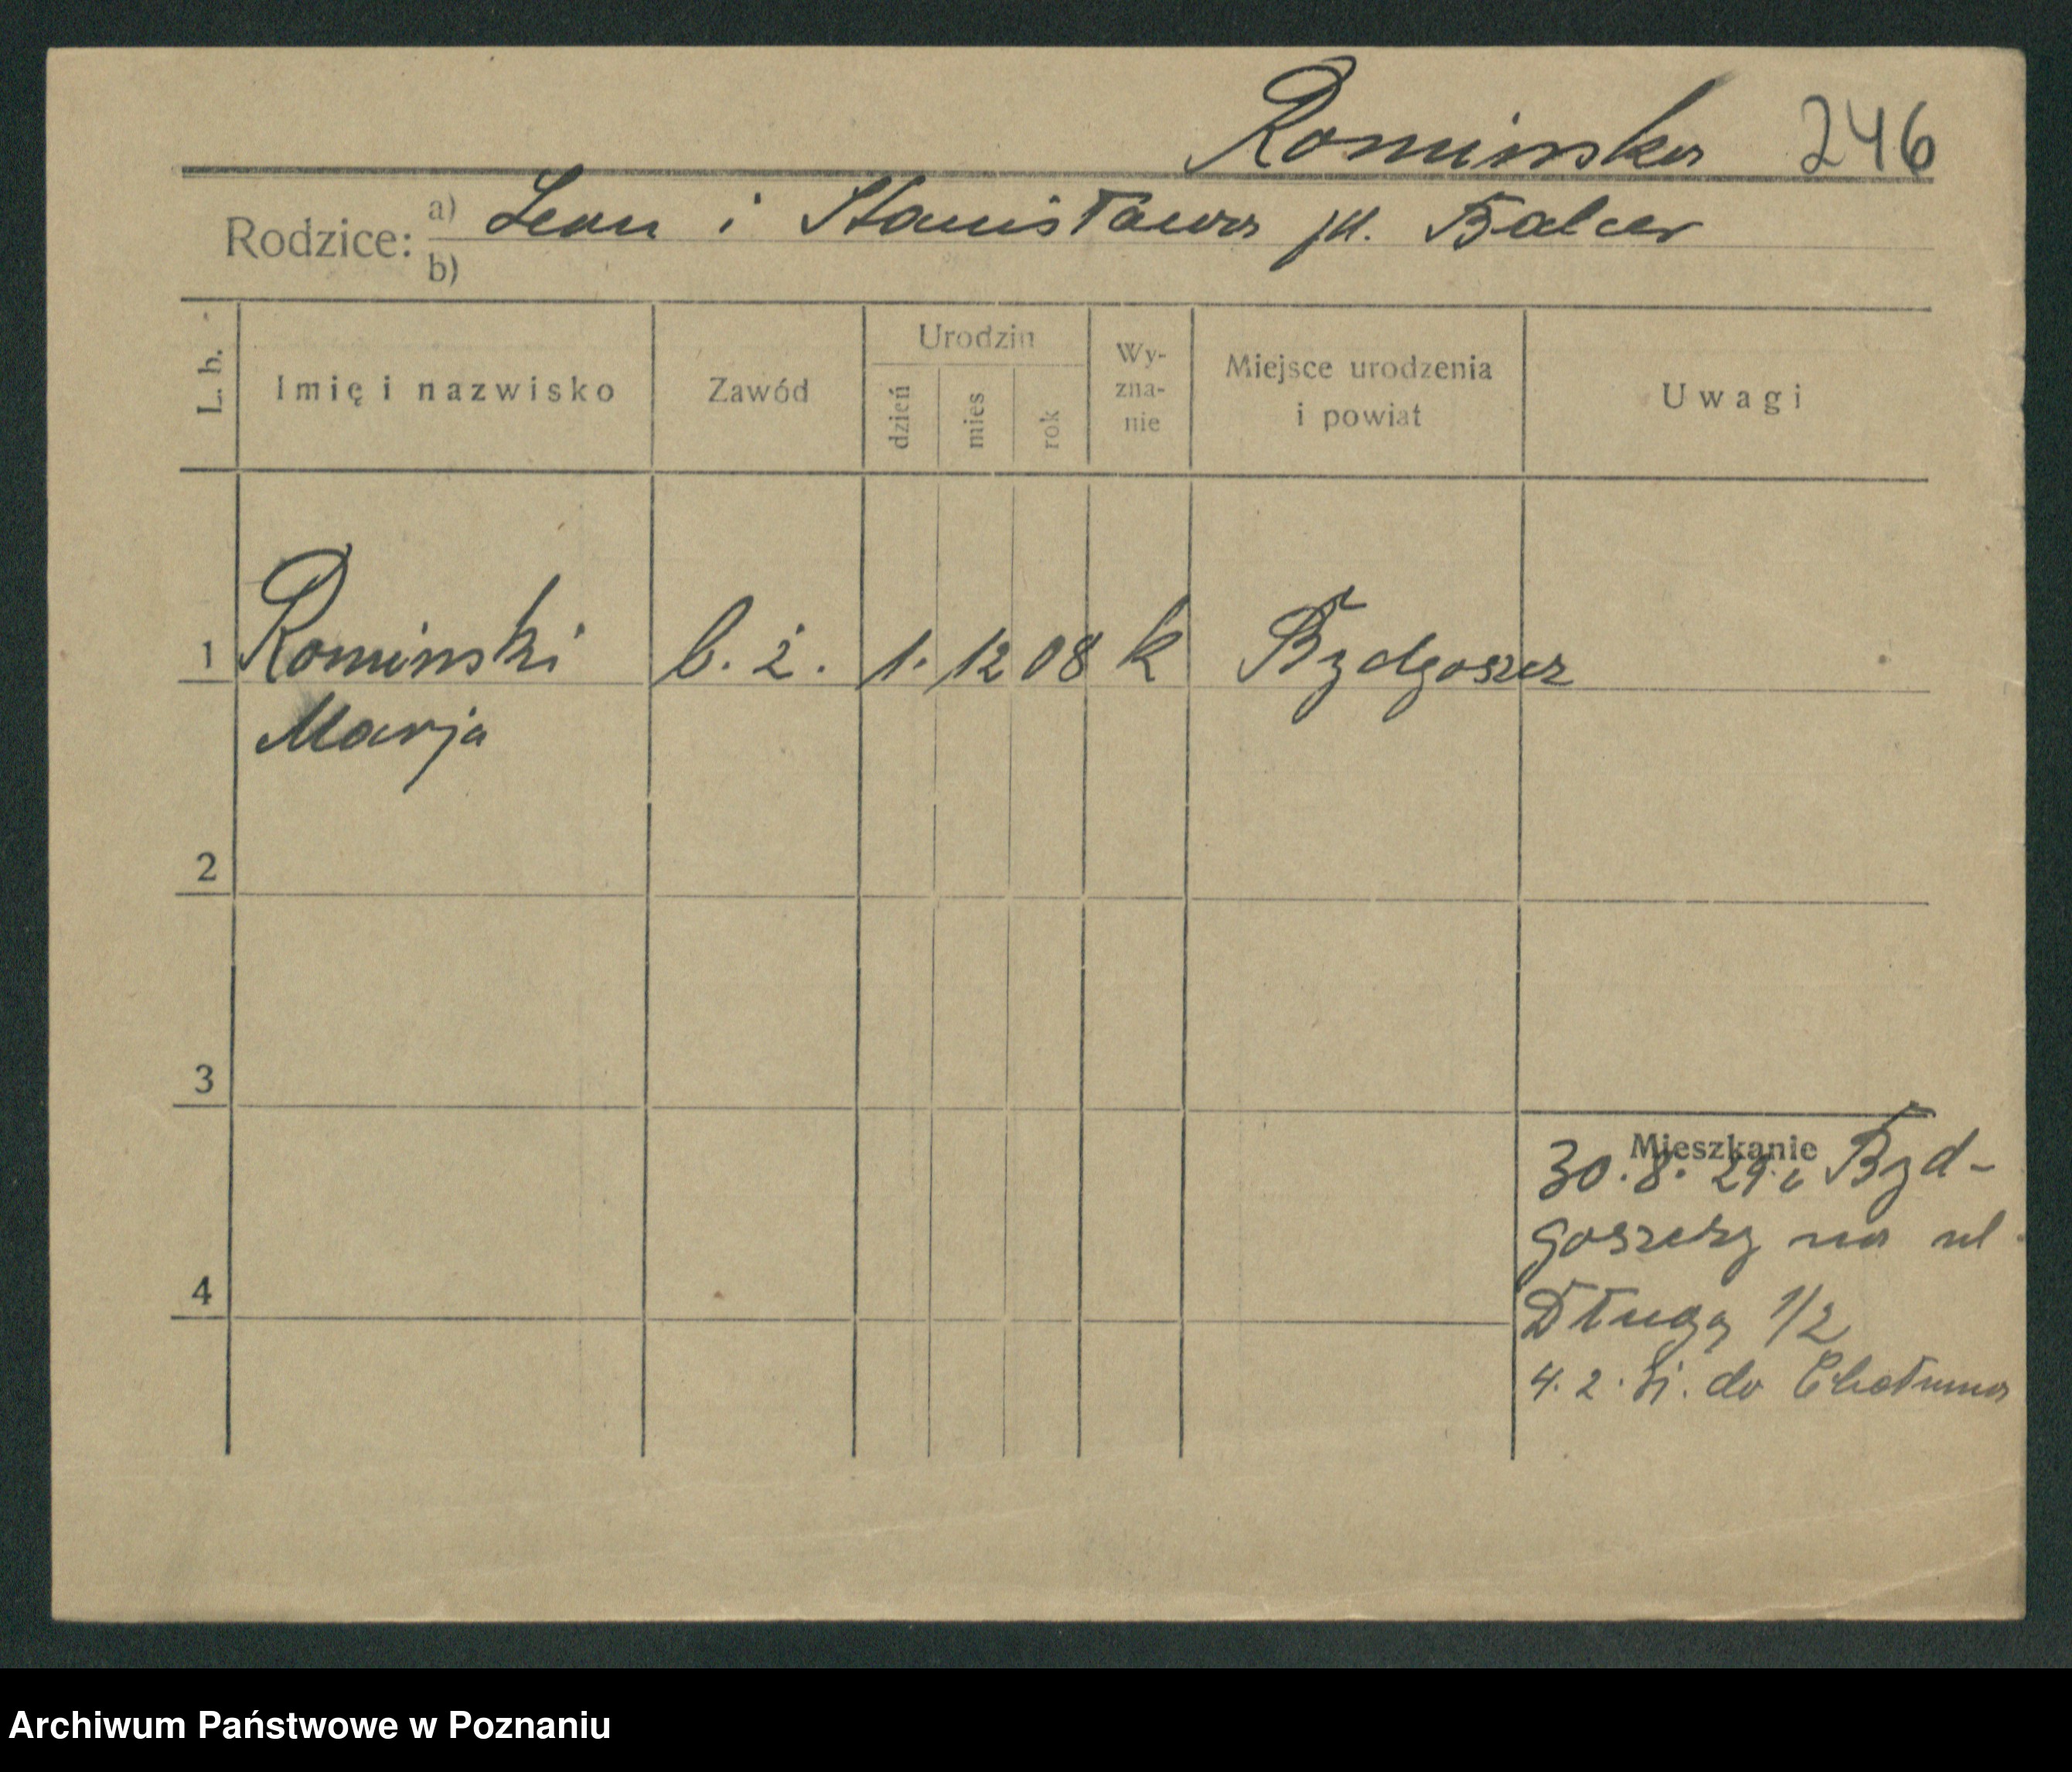 Rominska 246
Rodzice: a) Leon i Stanisława Balcer
b)
L. b. Imię i nazwisko Zawód Urodzin dzień mies rok Wy-zna-nie Miejsce urodzenia i powiat Uwagi
1 Rominski b. ż. 1. 12 08 k Bydgoszcz
Marja
2
3
4
Mieszkanie
30. 8. 29 Byd-
goszczy na ul.
Długą 1/2
4. 2. do
Archiwum Państwowe w Poznaniu